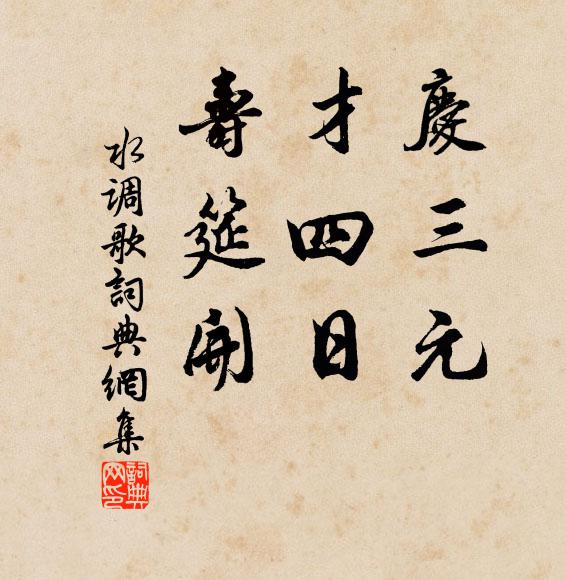 慶三元
才四日
壽筵開
水调歌詞典網集
詞典
网印